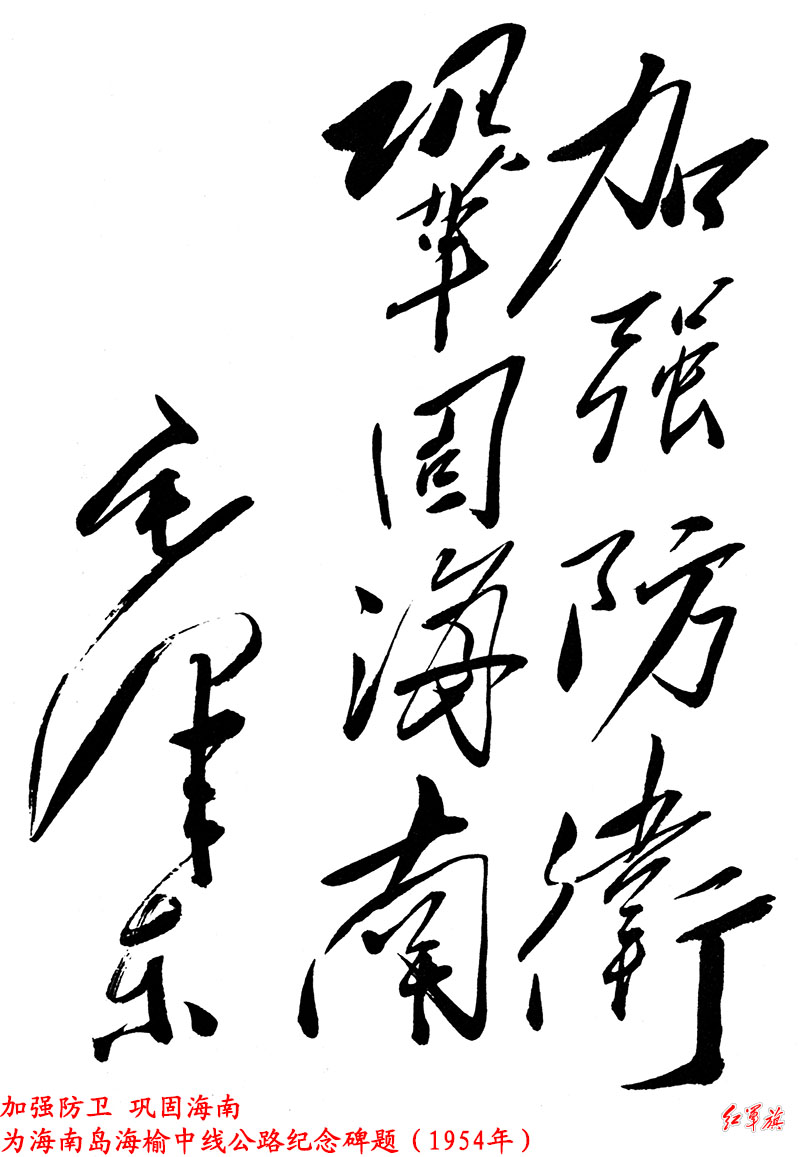 加强防衛
鞏固海南
毛泽东
加强防卫 巩固海南
为海南岛海榆中线公路纪念碑题（1954年）
红军旗